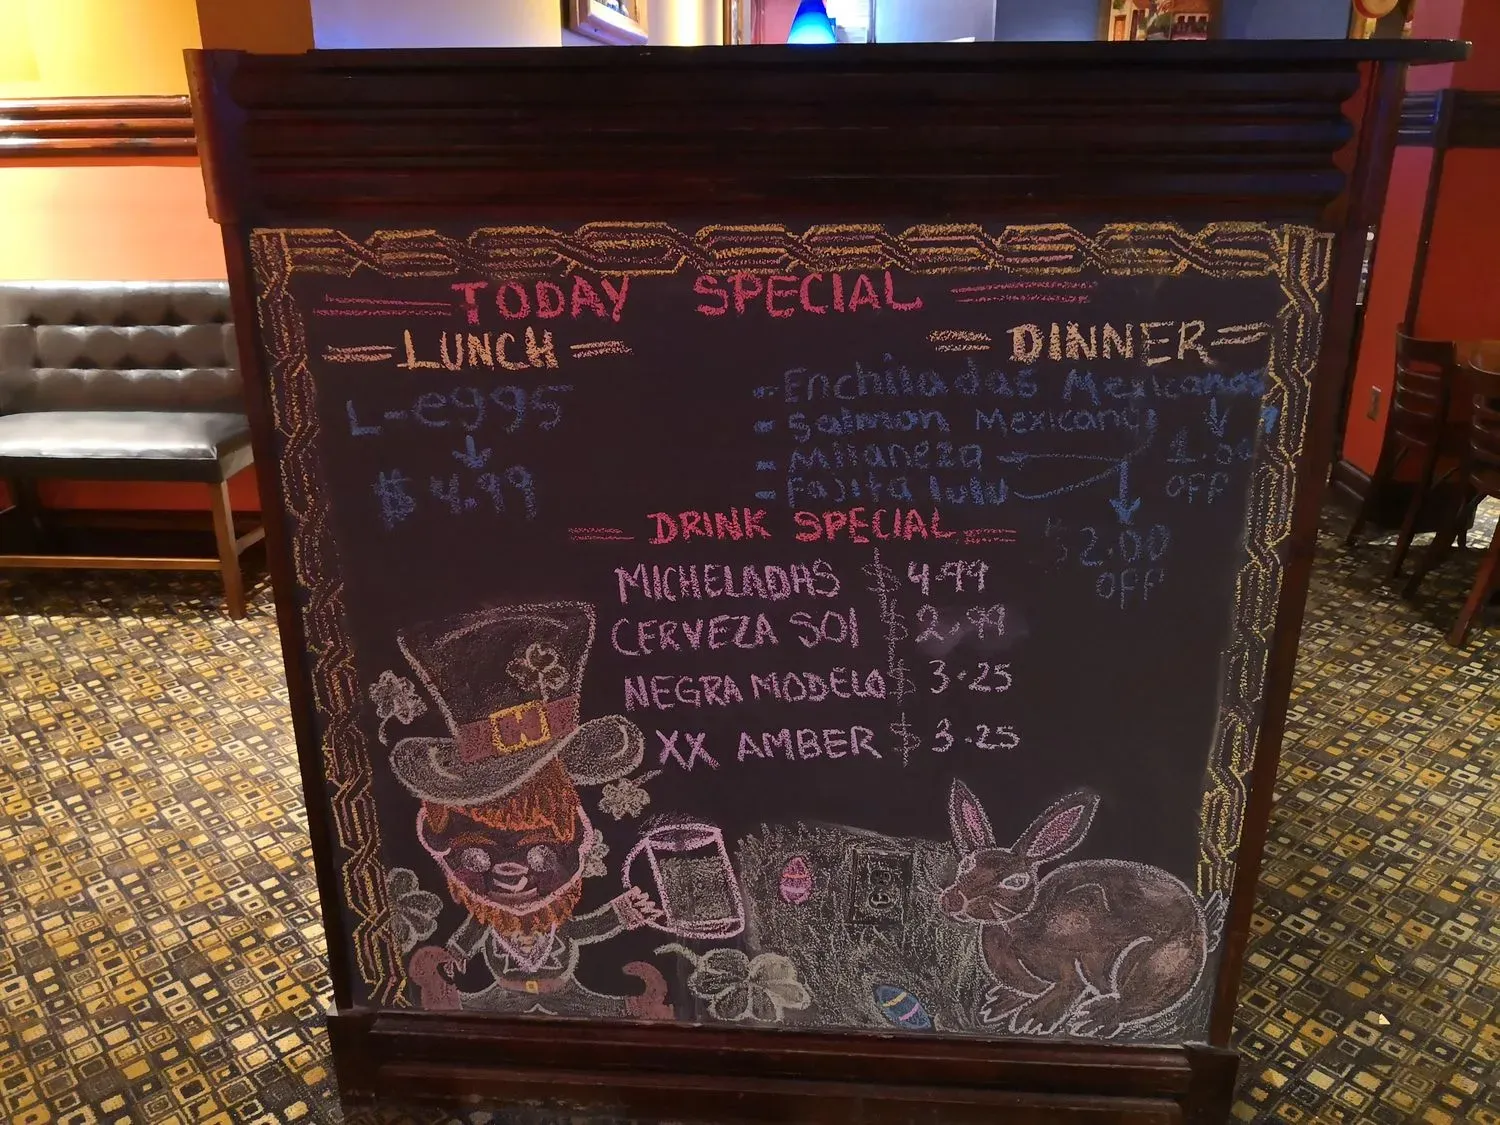 TODAY SPECIAL
LUNCH
L-e995
$4.99
DINNER
- Enchiladas Mexicanas
- Salmon Mexicano
- Milaneza
- Fajita lulu
1.00
OFF
$2.00
OFF
DRINK SPECIAL
MICHELADAS $4.99
CERVEZA SOl $2.99
NEGRA MODELO $3.25
XX AMBER $3.25